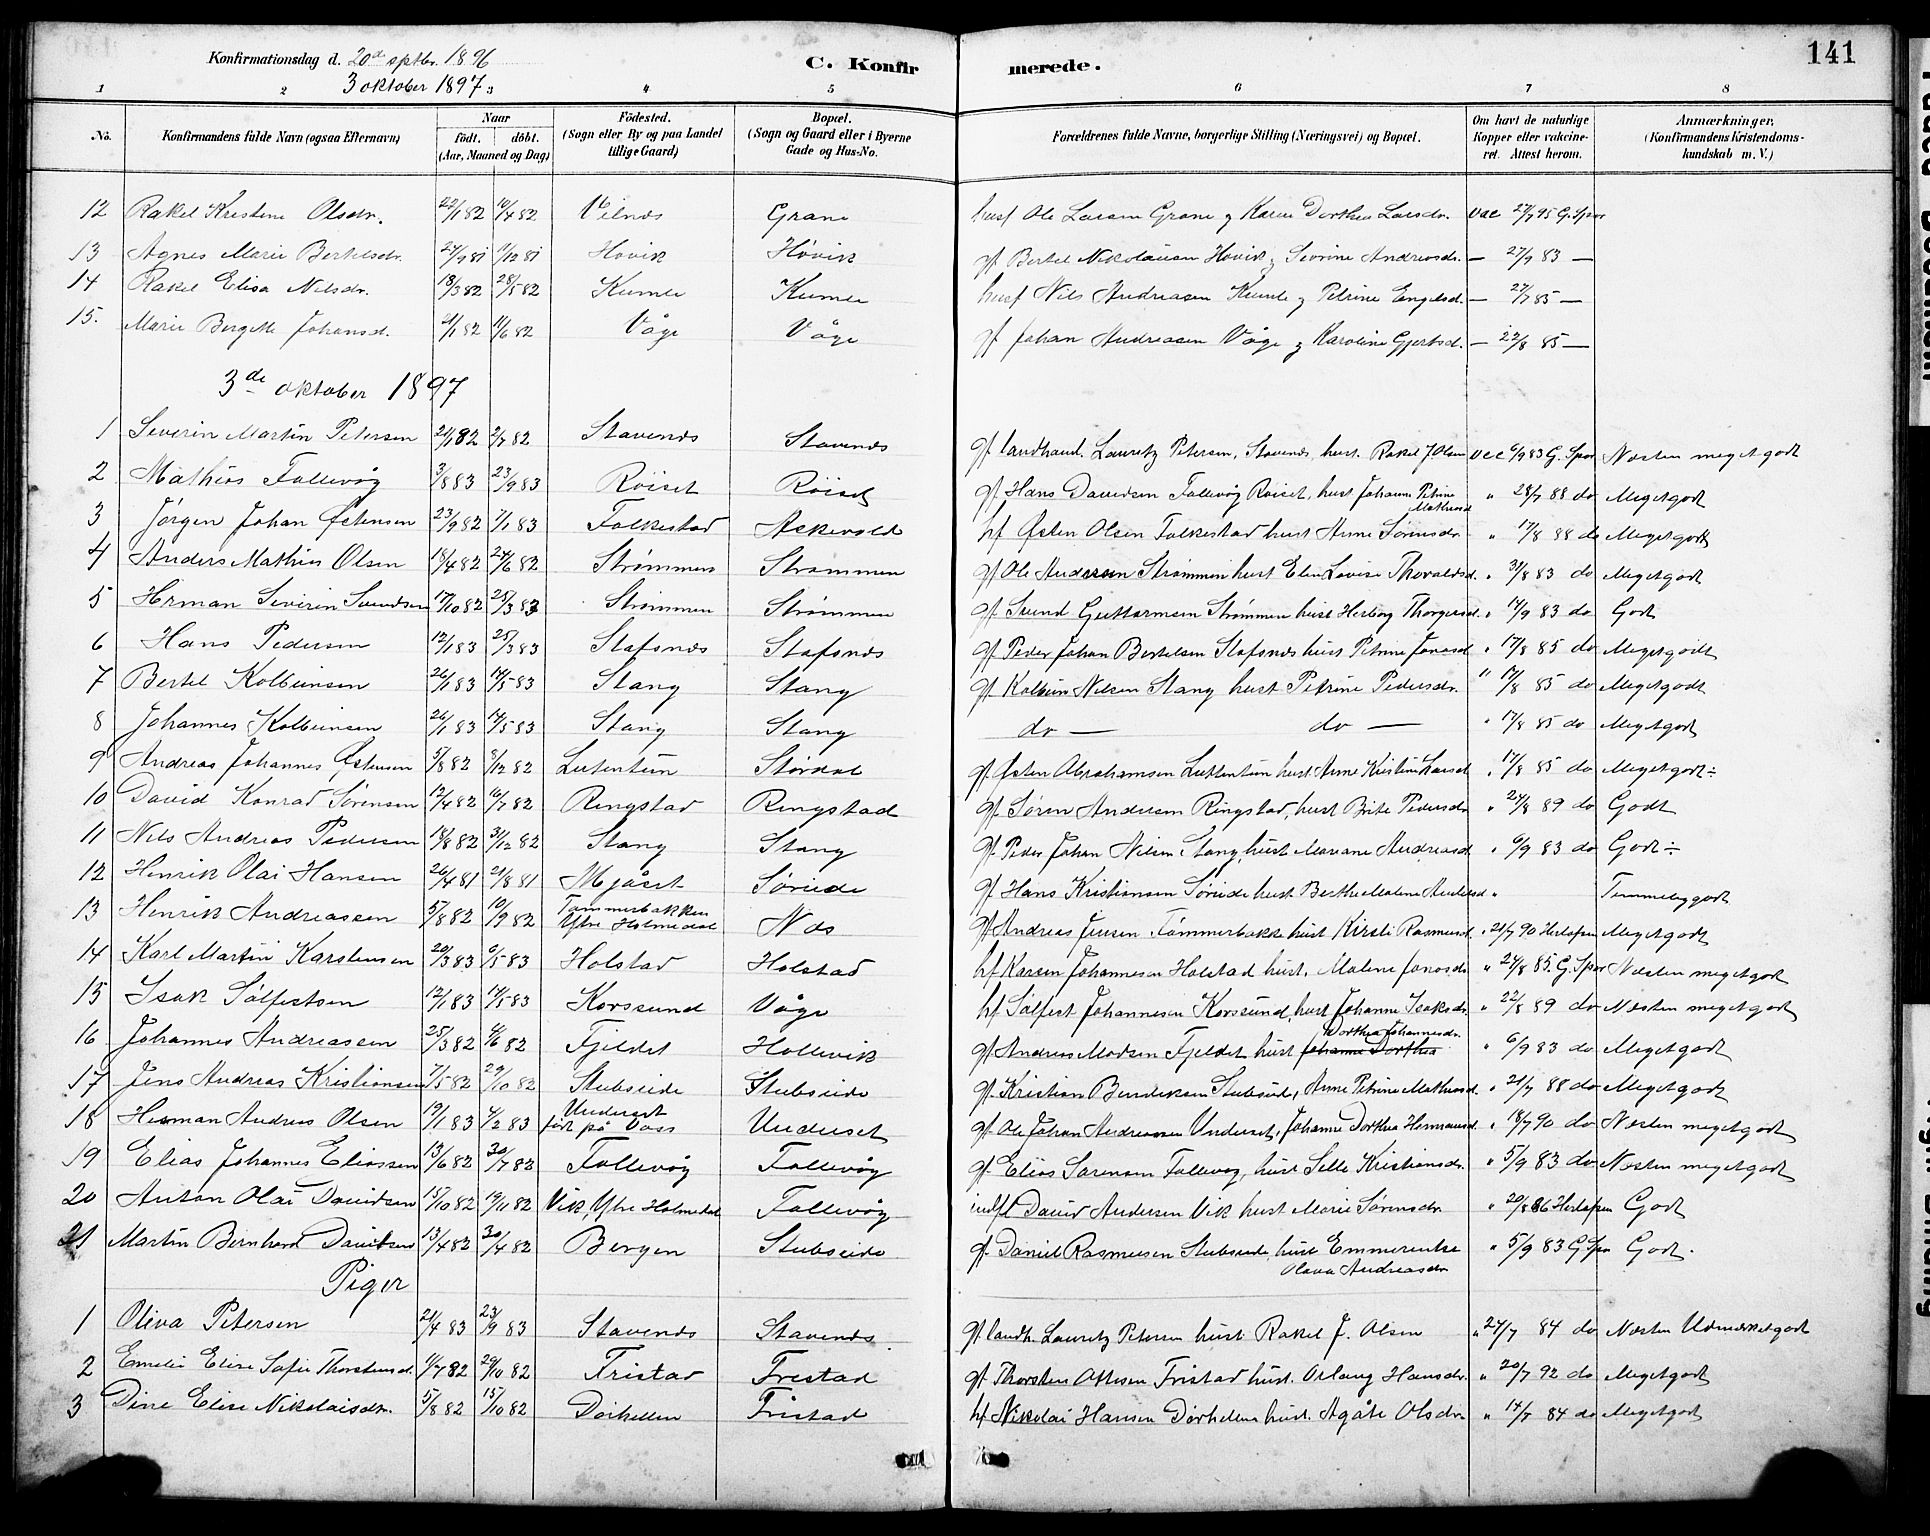 Konfirmationsdag d. 20de sptbr. 1896
3 oktober 1897
C. Konfirmerede.
141
1 2 3 4 5 6 7 8
No.
Konfirmandens fulde Navn (ogsaa Efternavn)
Naar
födt. döbt.
(Aar, Maaned og Dag)
Födested.
(Sogn eller By og paa Landet tillige Gaard)
Bopæl.
(Sogn og Gaard eller i Byerne Gade og Hus-No.
Forældrenes fulde Navne, borgerlige Stilling (Næringsvei) og Bopæl.
Om havt de naturlige Kopper eller vakcineret. Attest herom.
Anmærkninger,
(Konfirmandens Kristendomskundskab m. V.)
12 Rakel Kristine Olsdr. 22/1 82 10/4 82 Vilnæs Grane husf Ole Larsen Grane og Karen Dorthea Larsdr. vac 27/7 95 G. Spor
13 Agnes Marie Bertelsdr. 24/9 81 11/12 81 Hovik Høvik gf Bertel Nikolaisen Høvik og Severine Andreasdr. — 27/9 83 —
14 Rakel Elisa Nilsdr. 13/3 82 28/5 82 Kumle Kumle husf Nils Andreasen Kumle og Petrine Engelsd. — 27/7 85 —
15. Marie Bergitte Johansd. 21/1 82 11/6 82 Våge Våge gf Johan Andreasen Våge og Karoline Gjertsd. — 22/8 85 —
3de oktober 1897
1 Severin Martin Petersen 24/1 82 2/7 82 Stavenæs Stavenæs gf landhand. Lauretz Petersen, Stavenæs, hust. Rakel J. Olsen vac 6/9 83 G. Spor Næsten meget godt
2 Mathias Follevåg 3/8 83 23/9 83 Röiset Röiset gf Hans Davidsen Follevåg Röiset, hust Johanne Petrine Mathiasd " 28/7 88 do Meget godt
3 Jørgen Johan Østensen 23/9 82 7/1 83 Folkestad Askevold hf Østen Olsen Folkestad hust Anne Sørensdr. " 17/8 88 do Meget godt
4 Anders Mathias Olsen 18/4 82 24/6 82 Strømmen Strømmen gf Ole Andersen Strømmen hust Elen Lovise Thovaldsd. " 31/8 83 do Meget godt
5 Herman Severin Svendsen 17/10 82 25/3 83 Strømmen Strømmen gf Svend Guttormsen Strømmen hust Herborg Thorgersd. " 14/9 83 do Godt
6 Hans Pedersen 12/1 83 25/3 83 Stafsnæs Stafsnæs gf. Peder Johan Bertelsen Stafsnæs hust Petrine Jonasd " 17/8 85 do Meget godt
7 Bertel Kolbeinsen 26/1 83 14/5 83 Stang Stang gf. Kolbein Nilsen Stang hust Petrine Pedersdr. " 17/8 85 do Meget godt
8 Johannes Kolbeinsen 26/1 83 14/5 83 Stang Stang do — do — " 17/8 85 do Meget godt
9 Andreas Johannes Østensen 5/8 82 8/12 82 Lutentun Stordal gf. Østen Abrahamsen Luttentun hust Anne Kristine Larsd " 17/8 85 do Meget godt ÷
10 David Konrad Sørensen 12/4 82 16/7 82 Ringstad Ringstad gf. Søren Andersen Ringstad, hust Brite Pedersdr " 24/8 89 do Godt
11 Nils Andreas Pedersen 18/8 82 31/12 82 Stang Stang gf. Peder Johan Nilsen Stang, hust Mariane Andreasd. " 6/9 83 do Godt ÷
12 Henrik Olai Hansen 26/4 81 21/8 81 Mjåset Söreide gf Hans Kristiansen Söreide hust Berthe Malene Andersd " Temmelig godt
13 Henrik Andreassen 5/8 82 10/9 82 Tømmerbakken Yttre Holmedal Næs gf Andreas Jensen Tömmerbakke hust Kirsti Rasmusd. " 21/7 90 Meget godt
14 Karl Martin Karstensen 20/3 83 6/5 83 Holstad Holstad hf. Karsen Johannesen Holstad hust. Malene Jonasdr " 24/8 85. G. Spor Næsten meget godt
15 Isak Sölfestsen 12/1 83 14/5 83 Korssund Våge hf Sölfest Johannesen Korssund, hust Johanne Isaksdr. " 22/8 89 do Næsten meget godt
16 Johannes Andreassen 25/3 82 4/6 82 Fjeldet Hollevik gf. Andreas Madsen Fjeldet hust Johanne Dorthea Dorthea Johannesdr. " 6/9 83 do Meget godt
17 Jens Andreas Kristiansen 7/5 82 29/10 82 Stubseide Stubseide gf. Kristian Bendiksen Stubseide, Anne Petrine Mathiasd. " 21/7 88 do Meget godt
18 Herman Andreas Olsen 19/1 83 4/2 83 Underset födt på Voss Underset gf. Ole Johan Andreasen Underset, Johanne Dorthea Hermansd " 18/7 90 do Næsten meget godt
19 Elias Johannes Eliassen 13/6 82 30/7 82 Follevåg Follevåg gf. Elias Sörensen Follevåg, hust Selle Kristiansdr. " 5/9 83 do Næsten meget godt
20 Anton Olai Davidsen 15/10 82 19/11 82 Vik, Yttre Holmedal Follevåg indft David Andersen Vik hust Marie Sörensdr. " 20/8 86 Godt
21 Martin Bernhard Danielsen 13/4 82 30/4 82 Bergen Stubseide gf. Daniel Rasmusen Stubseide, hust Emmerentse Olava Andreasdr " 5/9 83 G. Spor Godt.
Piger
1 Oliva Petersen 21/4 83 23/9 83 Stavenæs Stavenæs gf. landh. Lauretz Petersen hust. Rakel J. Olsen " 24/7 84 do Næsten Udmærket godt
2 Emelie Elise Sofie Thorstensd. 4/7 82 29/10 82 Fristad Fristad gf Thorsten Ottesen Fristad hust. Orlaug Hansdr. " 20/7 92 do Meget godt
3 Dine Elise Nikolaisdr. 5/8 82 15/10 82 Dörhellen Fristad hf Nikolai Hansen Dörhellen hust. Agåte Olsdr " 14/7 84 do Meget godt